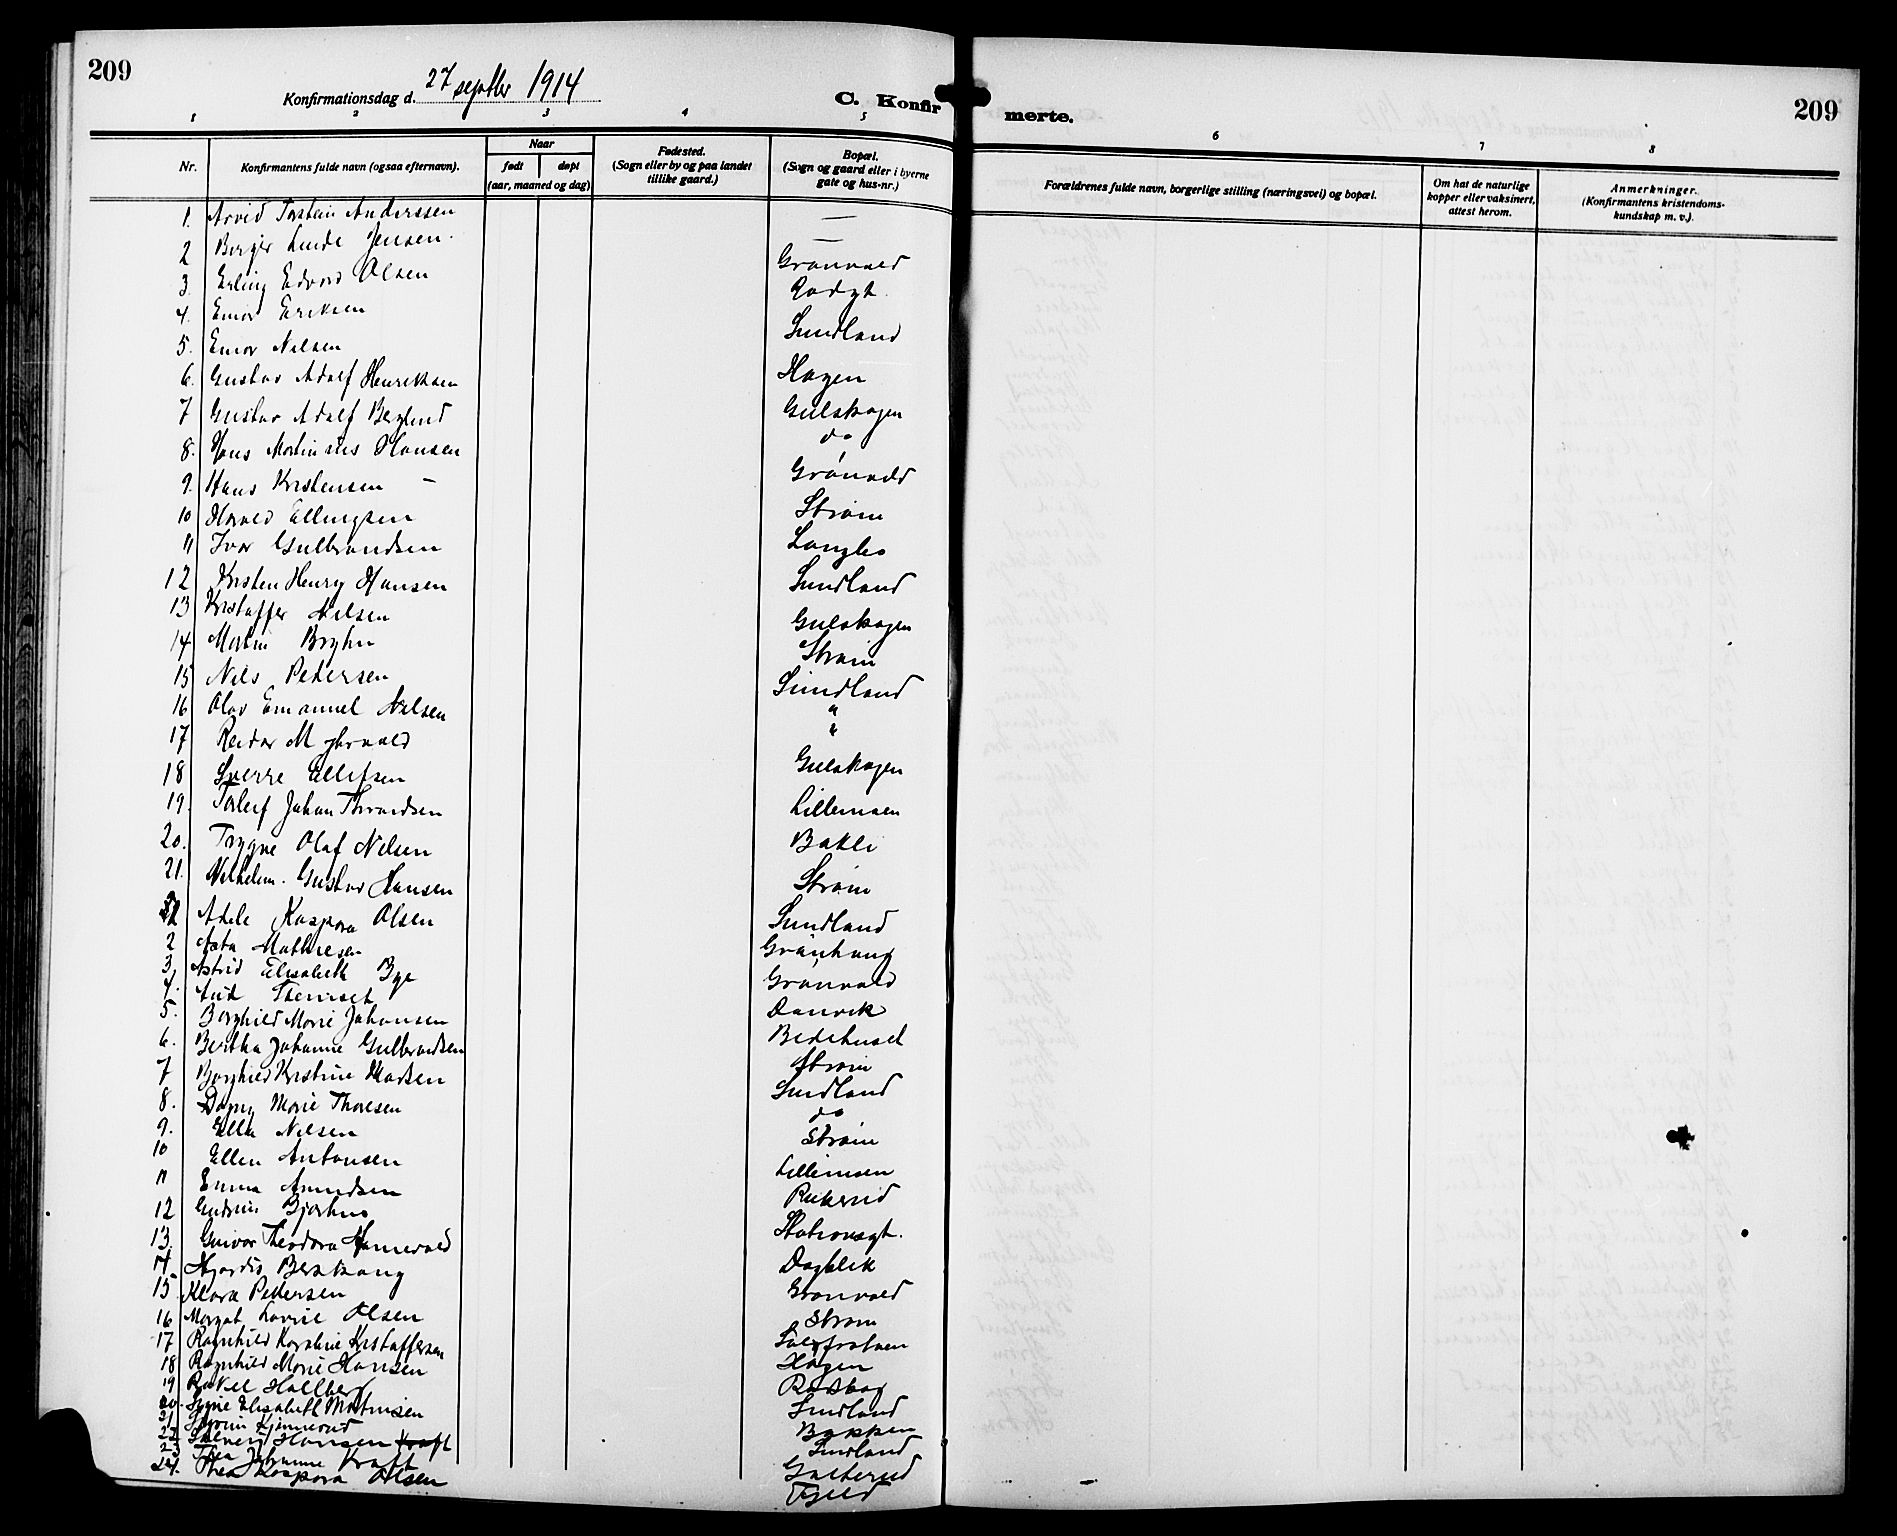 209
Konfirmationsdag d. 27 septbr 1914
C. Konfirmerte.
209
1 2 3 4 5 6 7 8
Nr.
Konfirmantens fulde navn (ogsaa efternavn).
Naar
født døpt
(aar, maaned og dag)
Fødested.
(Sogn eller by og paa landet
tillike gaard.)
Bopæl.
(Sogn og gaard eller i byerne
gate og hus-nr.)
Forældrenes fulde navn, borgerlige stilling (næringsvei) og bopæl.
Om hat de naturlige
kopper eller vaksinert,
attest herom.
Anmerkninger.
(Konfirmantens kristendoms-
kundskap m. v.).
1. Arvid Torstein Anderssen —
2 Birger Linde Jensen. —
3. Erling Edvard Olsen Grønvold
4. Einar Eriksen
5. Einar Nilsen Sundland
6. Gustav Adolf Henriksen Hagen
7 Gustav Adolf Berglund Gulskogen
8. Hans Martinius Hansen do
9. Hans Kristensen – Grønvold
10 Harald Ellingsen Strøm
11 Ivar Gulbrandsen Langbo
12 Kristen Henry Hansen Sundland
13 Kristoffer Nilsen Gulskogen
14 Martin Bryhn Strøm
15 Nils Pedersen Sundland
16 Olav Emanuel Nilsen "
17 Reidar M "
18 Sverre Ellefsen Gulskogen
19. Torleif Johan Throndsen Lillemoen
20. Trygve Olaf Nilsen Bakli
21. Vilhelm. Gustav Hansen Strøm
Adele Kaspora Olsen Sundland
2 Asta Mathiesen Grønhaug
3. Astrid Elisabeth Bye Grønvold
4. Aud Danvik
5. Borghild Marie Johansen Bedehuset
6. Bertha Johanne Gulbrandsen Strøm
7 Borghild Kristine Madsen Sundland
8. Dagny Marie Thoresen do
9. Ella Nilsen Strøm
10 Ellen Antonsen Lillemoen
11 Emma Amundsen
12 Gudrun Bjerknes Stationsgt.
13. Gunvor Theodora Dagblik
14. Hjørdis Berskaug Grønvold
15 Klara Pedersen Strøm
16 Margot Lovise Olsen
17 Ragnhild Karoline Kristoffersen Hagen
18 Ragnhild Marie Hansen Rødskog
19 Rakel Hallberg Sundland
20. Signe Elisabeth Martinsen Bakken
21. Kjennerud Sundland
22 Solveig Hansen Kraft
23 Thea Johanne Kraft
24. Thea Kaspora Olsen